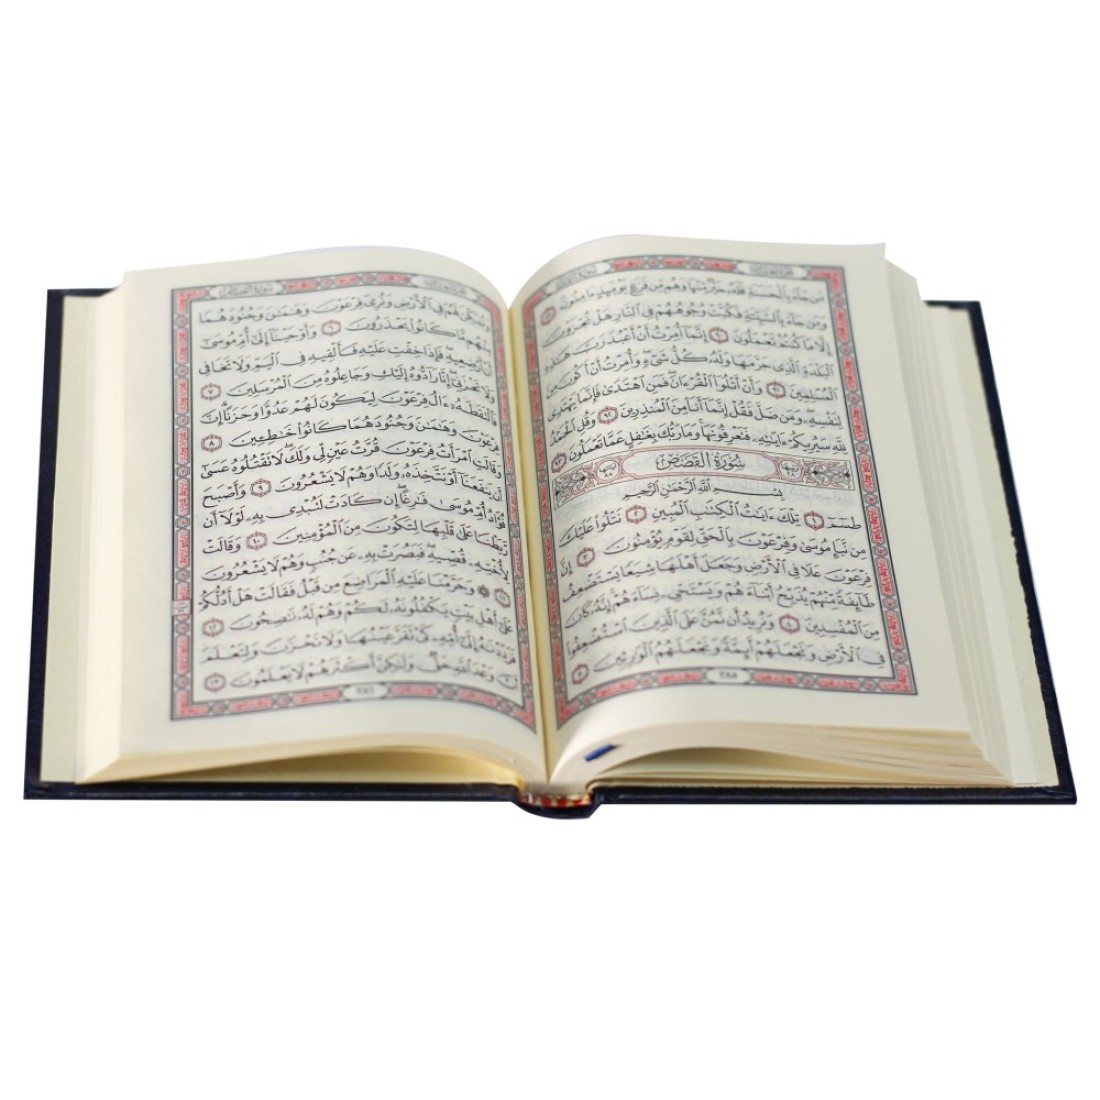 مَن جَآءَ بِٱلۡحَسَنَةِ فَلَهُۥ خَيۡرٞ مِّنۡهَا وَهُم مِّن فَزَعٖ يَوۡمَئِذٍ ءَامِنُونَ ٨٩
وَمَن جَآءَ بِٱلسَّيِّئَةِ فَكُبَّتۡ وُجُوهُهُمۡ فِي ٱلنَّارِ هَلۡ تُجۡزَوۡنَ
إِلَّا مَا كُنتُمۡ تَعۡمَلُونَ ٩٠ إِنَّمَآ أُمِرۡتُ أَنۡ أَعۡبُدَ رَبَّ هَٰذِهِ
ٱلۡبَلۡدَةِ ٱلَّذِي حَرَّمَهَا وَلَهُۥ كُلُّ شَيۡءٖۖ وَأُمِرۡتُ أَنۡ أَكُونَ مِنَ
ٱلۡمُسۡلِمِينَ ٩١ وَأَنۡ أَتۡلُوَاْ ٱلۡقُرۡءَانَۖ فَمَنِ ٱهۡتَدَىٰ فَإِنَّمَا يَهۡتَدِي
لِنَفۡسِهِۦۖ وَمَن ضَلَّ فَقُلۡ إِنَّمَآ أَنَا۠ مِنَ ٱلۡمُنذِرِينَ ٩٢ وَقُلِ ٱلۡحَمۡدُ
لِلَّهِ سَيُرِيكُمۡ ءَايَٰتِهِۦ فَتَعۡرِفُونَهَاۚ وَمَا رَبُّكَ بِغَٰفِلٍ عَمَّا تَعۡمَلُونَ ٩٣
سُورَةُ القَصَصِ
بِسۡمِ ٱللَّهِ ٱلرَّحۡمَٰنِ ٱلرَّحِيمِ
طسٓمٓ ١ تِلۡكَ ءَايَٰتُ ٱلۡكِتَٰبِ ٱلۡمُبِينِ ٢ نَتۡلُواْ عَلَيۡكَ
مِن نَّبَإِ مُوسَىٰ وَفِرۡعَوۡنَ بِٱلۡحَقِّ لِقَوۡمٖ يُؤۡمِنُونَ ٣ إِنَّ
فِرۡعَوۡنَ عَلَا فِي ٱلۡأَرۡضِ وَجَعَلَ أَهۡلَهَا شِيَعٗا يَسۡتَضۡعِفُ
طَآئِفَةٗ مِّنۡهُمۡ يُذَبِّحُ أَبۡنَآءَهُمۡ وَيَسۡتَحۡيِۦ نِسَآءَهُمۡۚ إِنَّهُۥ كَانَ
مِنَ ٱلۡمُفۡسِدِينَ ٤ وَنُرِيدُ أَن نَّمُنَّ عَلَى ٱلَّذِينَ ٱسۡتُضۡعِفُواْ
فِي ٱلۡأَرۡضِ وَنَجۡعَلَهُمۡ أَئِمَّةٗ وَنَجۡعَلَهُمُ ٱلۡوَٰرِثِينَ ٥
٣٨٥
وَنُمَكِّنَ لَهُمۡ فِي ٱلۡأَرۡضِ وَنُرِيَ فِرۡعَوۡنَ وَهَٰمَٰنَ وَجُنُودَهُمَا
مِنۡهُم مَّا كَانُواْ يَحۡذَرُونَ ٦ وَأَوۡحَيۡنَآ إِلَىٰٓ أُمِّ مُوسَىٰٓ
أَنۡ أَرۡضِعِيهِۖ فَإِذَا خِفۡتِ عَلَيۡهِ فَأَلۡقِيهِ فِي ٱلۡيَمِّ وَلَا تَخَافِي
وَلَا تَحۡزَنِيٓۖ إِنَّا رَآدُّوهُ إِلَيۡكِ وَجَاعِلُوهُ مِنَ ٱلۡمُرۡسَلِينَ ٧
فَٱلۡتَقَطَهُۥٓ ءَالُ فِرۡعَوۡنَ لِيَكُونَ لَهُمۡ عَدُوّٗا وَحَزَنًاۗ إِنَّ
فِرۡعَوۡنَ وَهَٰمَٰنَ وَجُنُودَهُمَا كَانُواْ خَٰطِـِٔينَ ٨
وَقَالَتِ ٱمۡرَأَتُ فِرۡعَوۡنَ قُرَّتُ عَيۡنٖ لِّي وَلَكَۖ لَا تَقۡتُلُوهُ عَسَىٰٓ
أَن يَنفَعَنَآ أَوۡ نَتَّخِذَهُۥ وَلَدٗا وَهُمۡ لَا يَشۡعُرُونَ ٩ وَأَصۡبَحَ
فُؤَادُ أُمِّ مُوسَىٰ فَٰرِغًاۖ إِن كَادَتۡ لَتُبۡدِي بِهِۦ لَوۡلَآ أَن
رَّبَطۡنَا عَلَىٰ قَلۡبِهَا لِتَكُونَ مِنَ ٱلۡمُؤۡمِنِينَ ١٠ وَقَالَتۡ
لِأُخۡتِهِۦ قُصِّيهِۖ فَبَصُرَتۡ بِهِۦ عَن جُنُبٖ وَهُمۡ لَا يَشۡعُرُونَ
١١ ۞ وَحَرَّمۡنَا عَلَيۡهِ ٱلۡمَرَاضِعَ مِن قَبۡلُ فَقَالَتۡ هَلۡ أَدُلُّكُمۡ
عَلَىٰٓ أَهۡلِ بَيۡتٖ يَكۡفُلُونَهُۥ لَكُمۡ وَهُمۡ لَهُۥ نَٰصِحُونَ ١٢
فَرَدَدۡنَٰهُ إِلَىٰٓ أُمِّهِۦ كَيۡ تَقَرَّ عَيۡنُهَا وَلَا تَحۡزَنَ وَلِتَعۡلَمَ
أَنَّ وَعۡدَ ٱللَّهِ حَقّٞ وَلَٰكِنَّ أَكۡثَرَهُمۡ لَا يَعۡلَمُونَ ١٣
٣٨٦